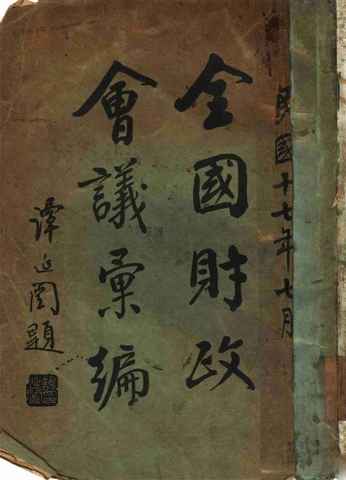 民國十七年七月
全國財政
會議彙編
譚延闓題